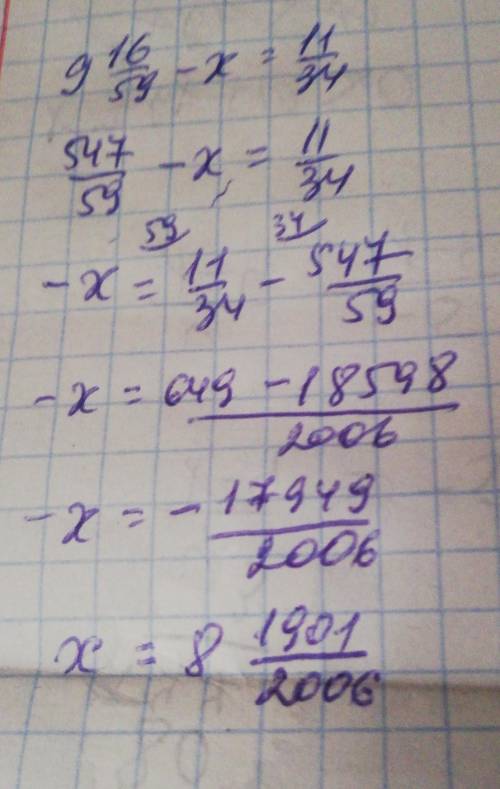 9 16/59 - x = 11/34
547/59 - x = 11/34
- x = 11/34 (59 - 547/59 (34
- x = 649 - 18598/2006
- x = - 17949/2006
x = 8 1901/2006